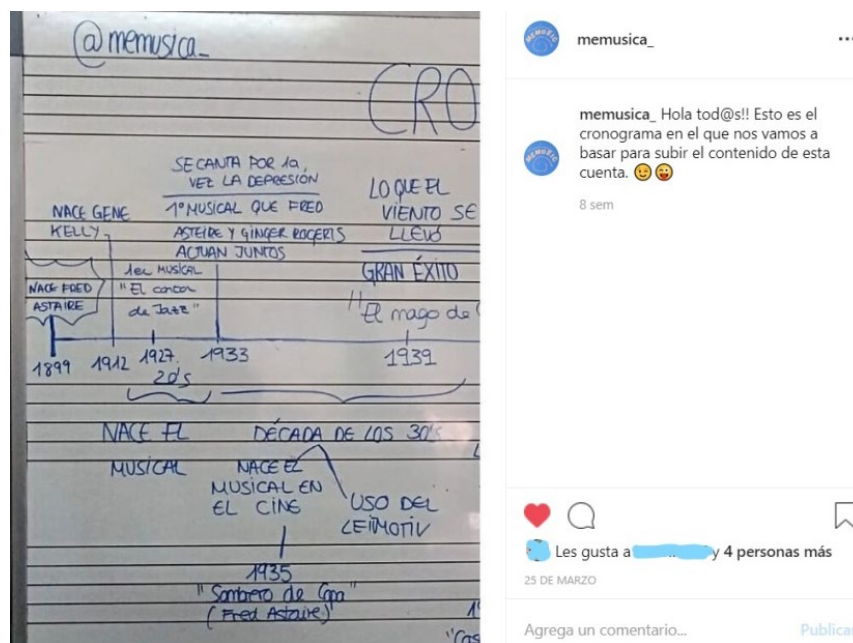 @memusica_
CRO
SE CANTA POR 1a,
VEZ LA DEPRESIÓN
1º MUSICAL QUE FRED
ASTEIRE Y GINGER ROGERTS
ACTUAN JUNTOS
LO QUE EL
VIENTO SE
LLEVÓ
GRAN ÉXITO
"El mago de
NACE GENE
KELLY
1er MUSICAL
"El cantor
de Jazz"
NACE FRED
ASTAIRE
1899
1912
1927
1933
1939
20's
NACE EL
MUSICAL
DÉCADA DE LOS 30's
NACE EL
MUSICAL EN
EL CINE
USO DEL
LEIMOTIV
1935
"Sombrero de Copa"
(Fred Astaire)
"Cas
MEMUZIC
memusica_
MEMUZIC
memusica_ Hola tod@s!! Esto es el
cronograma en el que nos vamos a
basar para subir el contenido de esta
cuenta. 😉😜
8 sem
Les gusta a
y 4 personas más
25 DE MARZO
Agrega un comentario...
Publicar